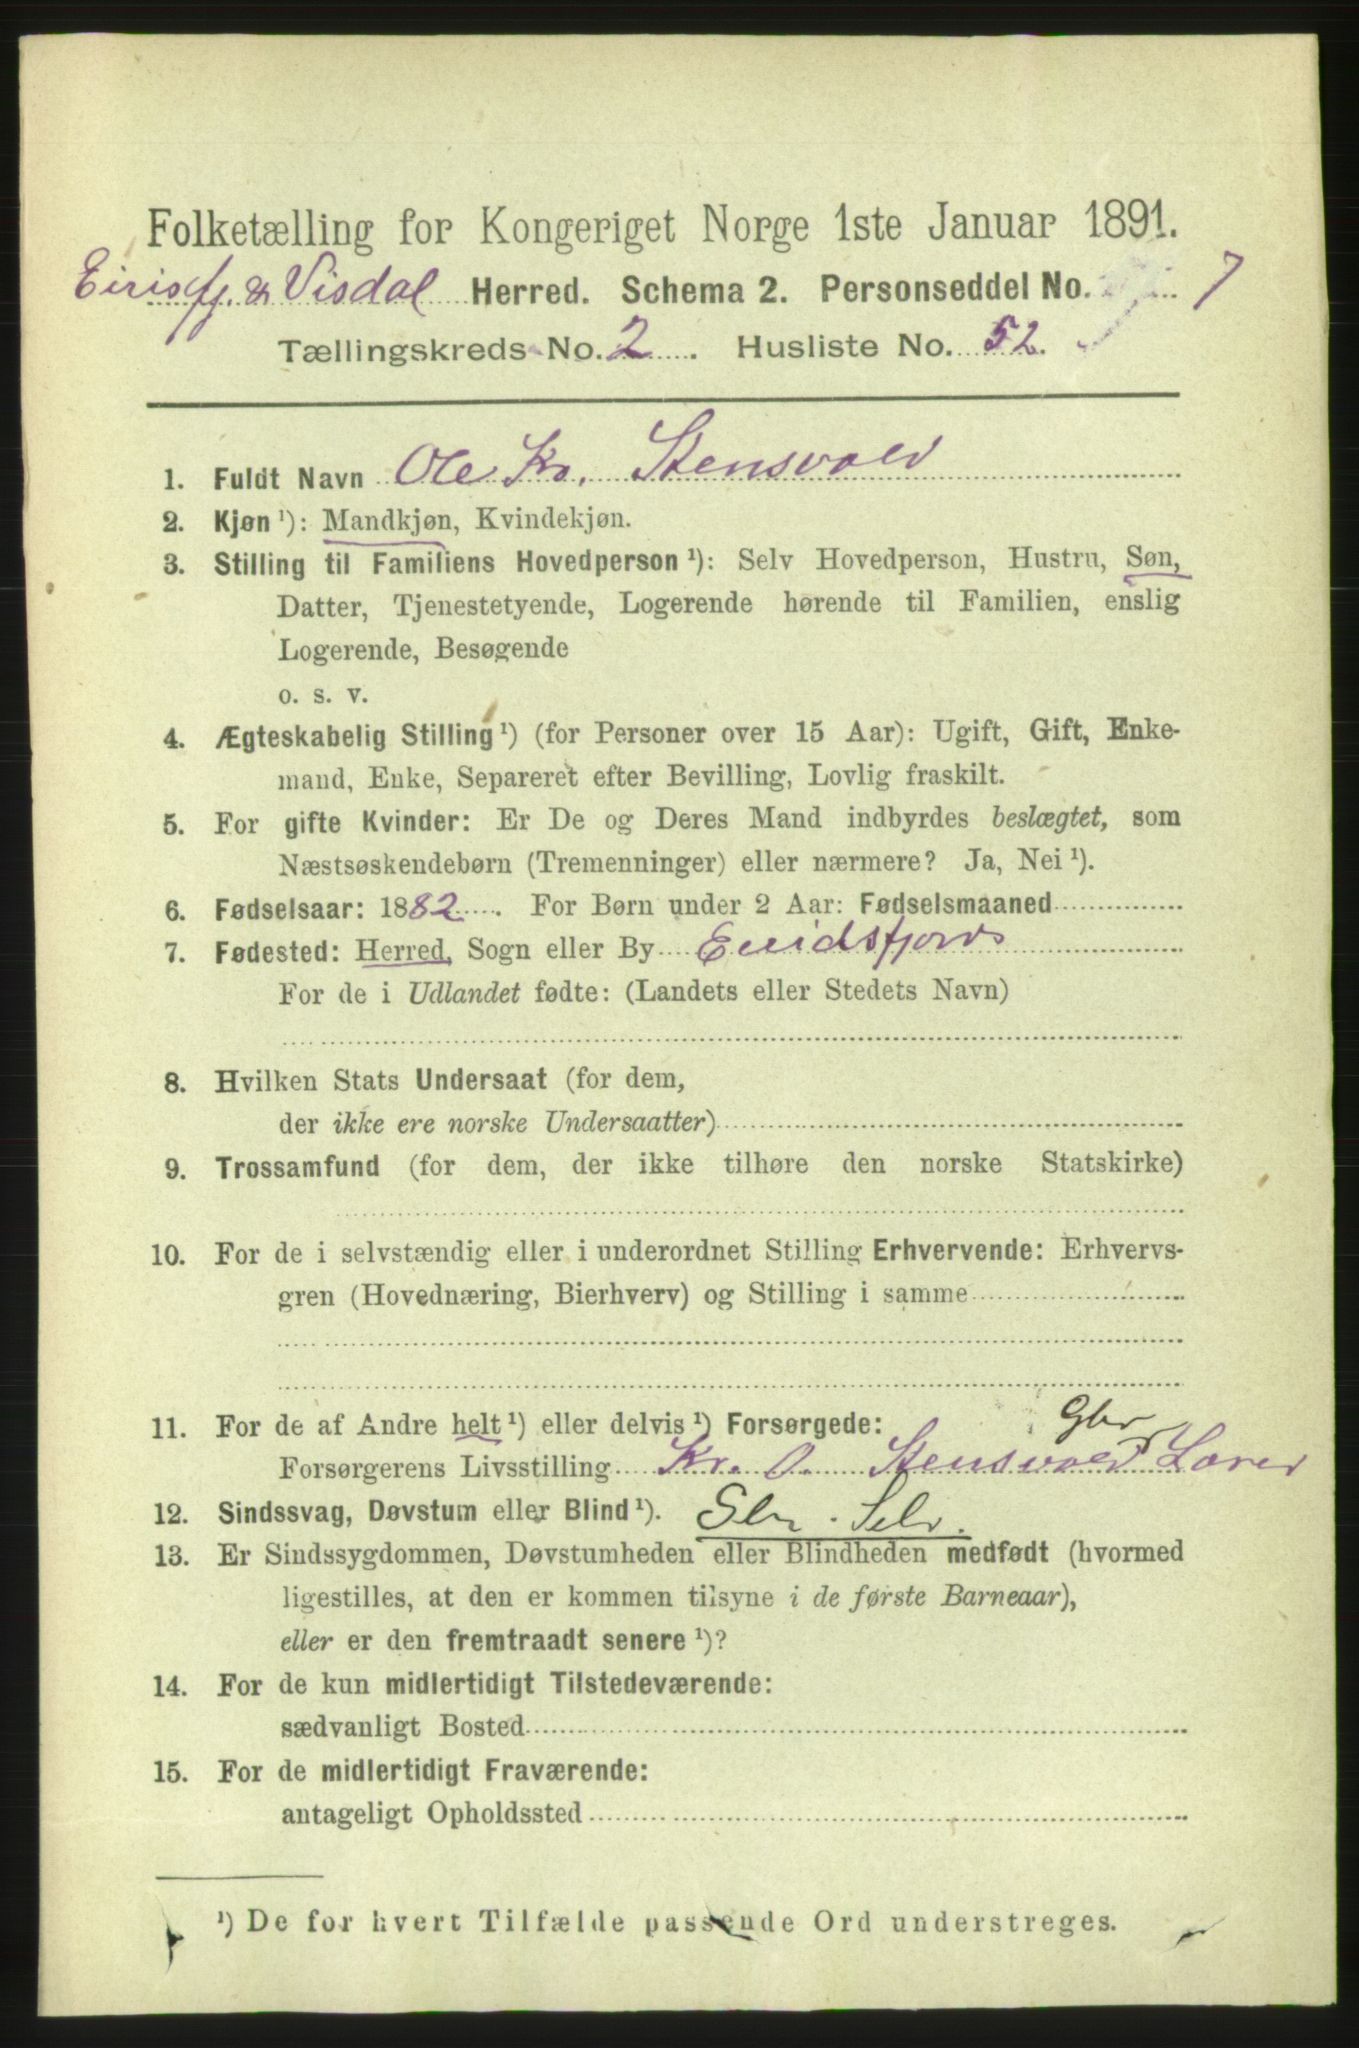 Folketælling for Kongeriget Norge 1ste Januar 1891.
Eirisfj. & Visdal Herred. Schema 2. Personseddel No. 7
Tællingskreds No. 2. Husliste No. 52.
1. Fuldt Navn Ole Kr. Stensvold
2. Kjøn ¹): Mandkjøn, Kvindekjøn.
3. Stilling til Familiens Hovedperson ¹): Selv Hovedperson, Hustru, Søn,
Datter, Tjenestetyende, Logerende hørende til Familien, enslig
Logerende, Besøgende
o. s. v.
4. Ægteskabelig Stilling ¹) (for Personer over 15 Aar): Ugift, Gift, Enke-
mand, Enke, Separeret efter Bevilling, Lovlig fraskilt.
5. For gifte Kvinder: Er De og Deres Mand indbyrdes beslægtet, som
Næstsøskendebørn (Tremenninger) eller nærmere? Ja, Nei ¹).
6. Fødselsaar: 1882. For Børn under 2 Aar: Fødselsmaaned
7. Fødested: Herred, Sogn eller By
For de i Udlandet fødte: (Landets eller Stedets Navn)
8. Hvilken Stats Undersaat (for dem,
der ikke ere norske Undersaatter)
9. Trossamfund (for dem, der ikke tilhøre den norske Statskirke)
10. For de i selvstændig eller i underordnet Stilling Erhvervende: Erhvervs-
gren (Hovednæring, Bierhverv) og Stilling i samme
11. For de af Andre helt ¹) eller delvis ¹) Forsørgede: Gbr
Forsørgerens Livsstilling Kr. O. Stensvold
12. Sindssvag, Døvstum eller Blind ¹). Gbr. Selv.
13. Er Sindssygdommen, Døvstumheden eller Blindheden medfødt (hvormed
ligestilles, at den er kommen tilsyne i de første Barneaar),
eller er den fremtraadt senere ¹)?
14. For de kun midlertidigt Tilstedeværende:
sædvanligt Bosted
15. For de midlertidigt Fraværende:
antageligt Opholdssted
¹) De for hvert Tilfælde passende Ord understreges.